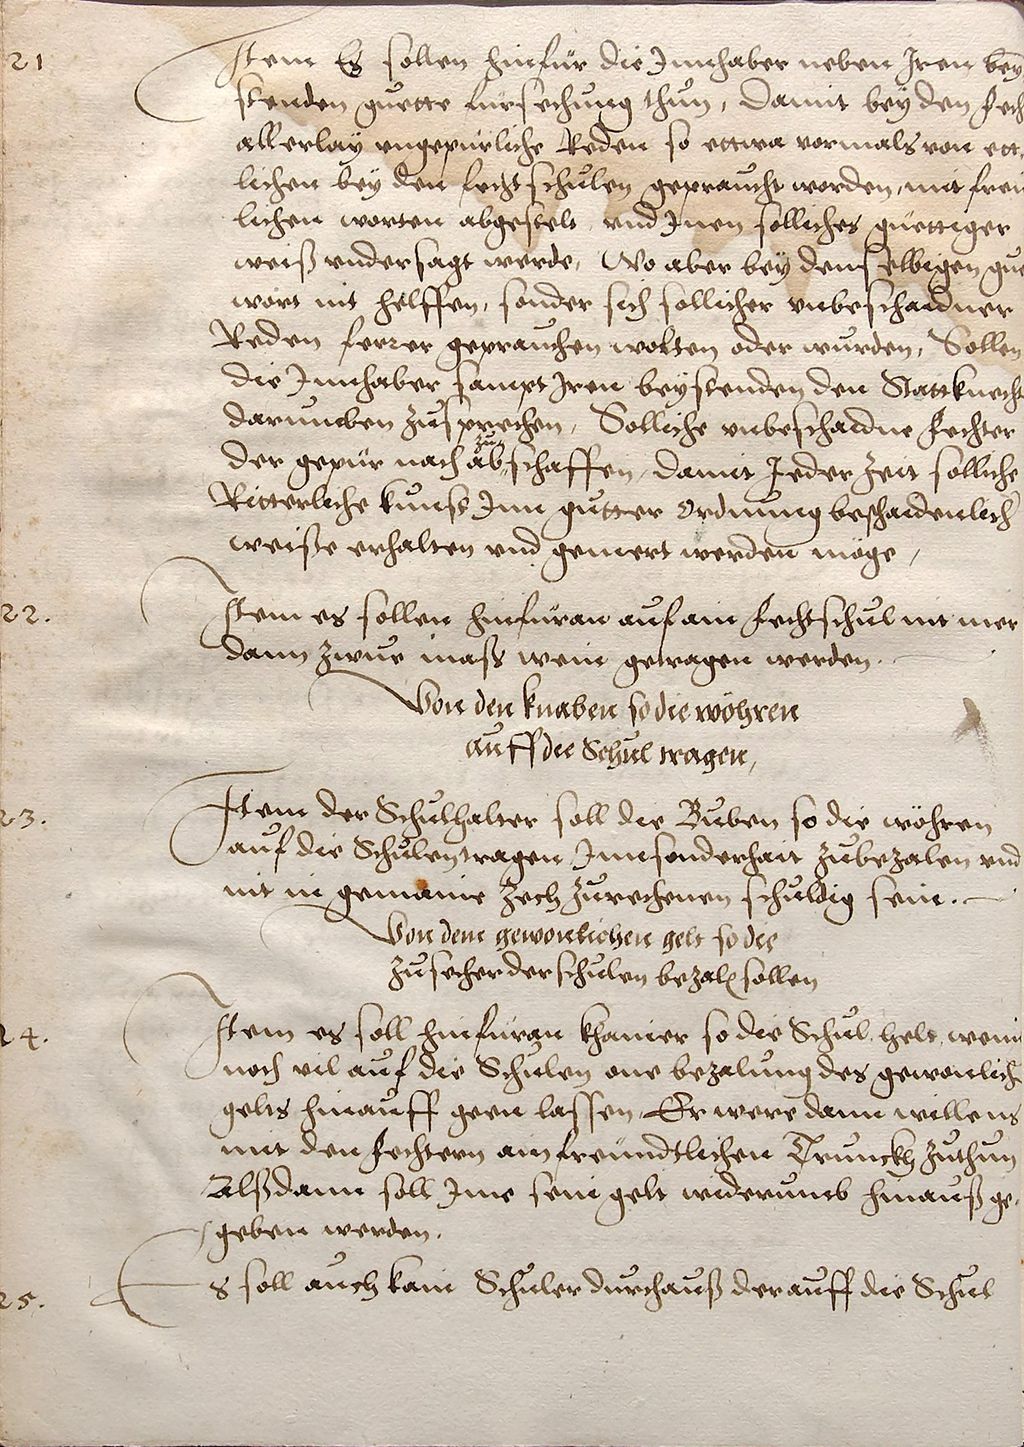 21 Item Es sollen hinfür die Innhaber neben Iren bey
stenden guette fürsechung thun, Damit bey den fech
allerlay ungepürliche Reden so ettwa vormals von ett
lichen bey den fechtschulen gepraucht worden, mit freu
lichen worten abgestelt und Inen solliches güettiger
weiß undersagt werde, Wo aber bey denselbigen gue
wort nit helffen, sonder sich sollicher unbeschaidner
Reden ferrer geprauchen wolten oder wurden, Sollen
die Innhaber sampt Iren beystenden den Stattknecht
darumben zusprechen, Solliche unbeschaidne fechter
der gepür nach ab zu schaffen, damit Jeder Zeit solliche
Ritterliche kunst Inn gutter Ordnung beschaidenlich
weiße erhalten und gemert werden möge,
22. Item es sollen hinfüran auf ain fechtschul nit mer
dann zwue mass wein getragen werden.
Von den knaben so die wöhren
auff die Schul tragen,
23. Item der Schulhalter soll die Buben so die wöhren
auf die Schulen tragen Innsonderhait zubezalen und
nit in gemaine Zech zurechenen schuldig sein.
Von dem gewonlichen gelt so die
zusecher der schulen bezaln sollen
24. Item es soll hinfüran khainer so die Schul helt, weni
noch vil auf die Schulen one bezalung des gewonlich
gelts hinauff geen lassen, Er were dann willens
mit den fechtern ain freundtlichen Trunckh zuthun
Alßdann soll Ime sein gelt widerumb hinauß ge,
geben werden.
25. Es soll auch kain Schuler durchauß der auff die Schul